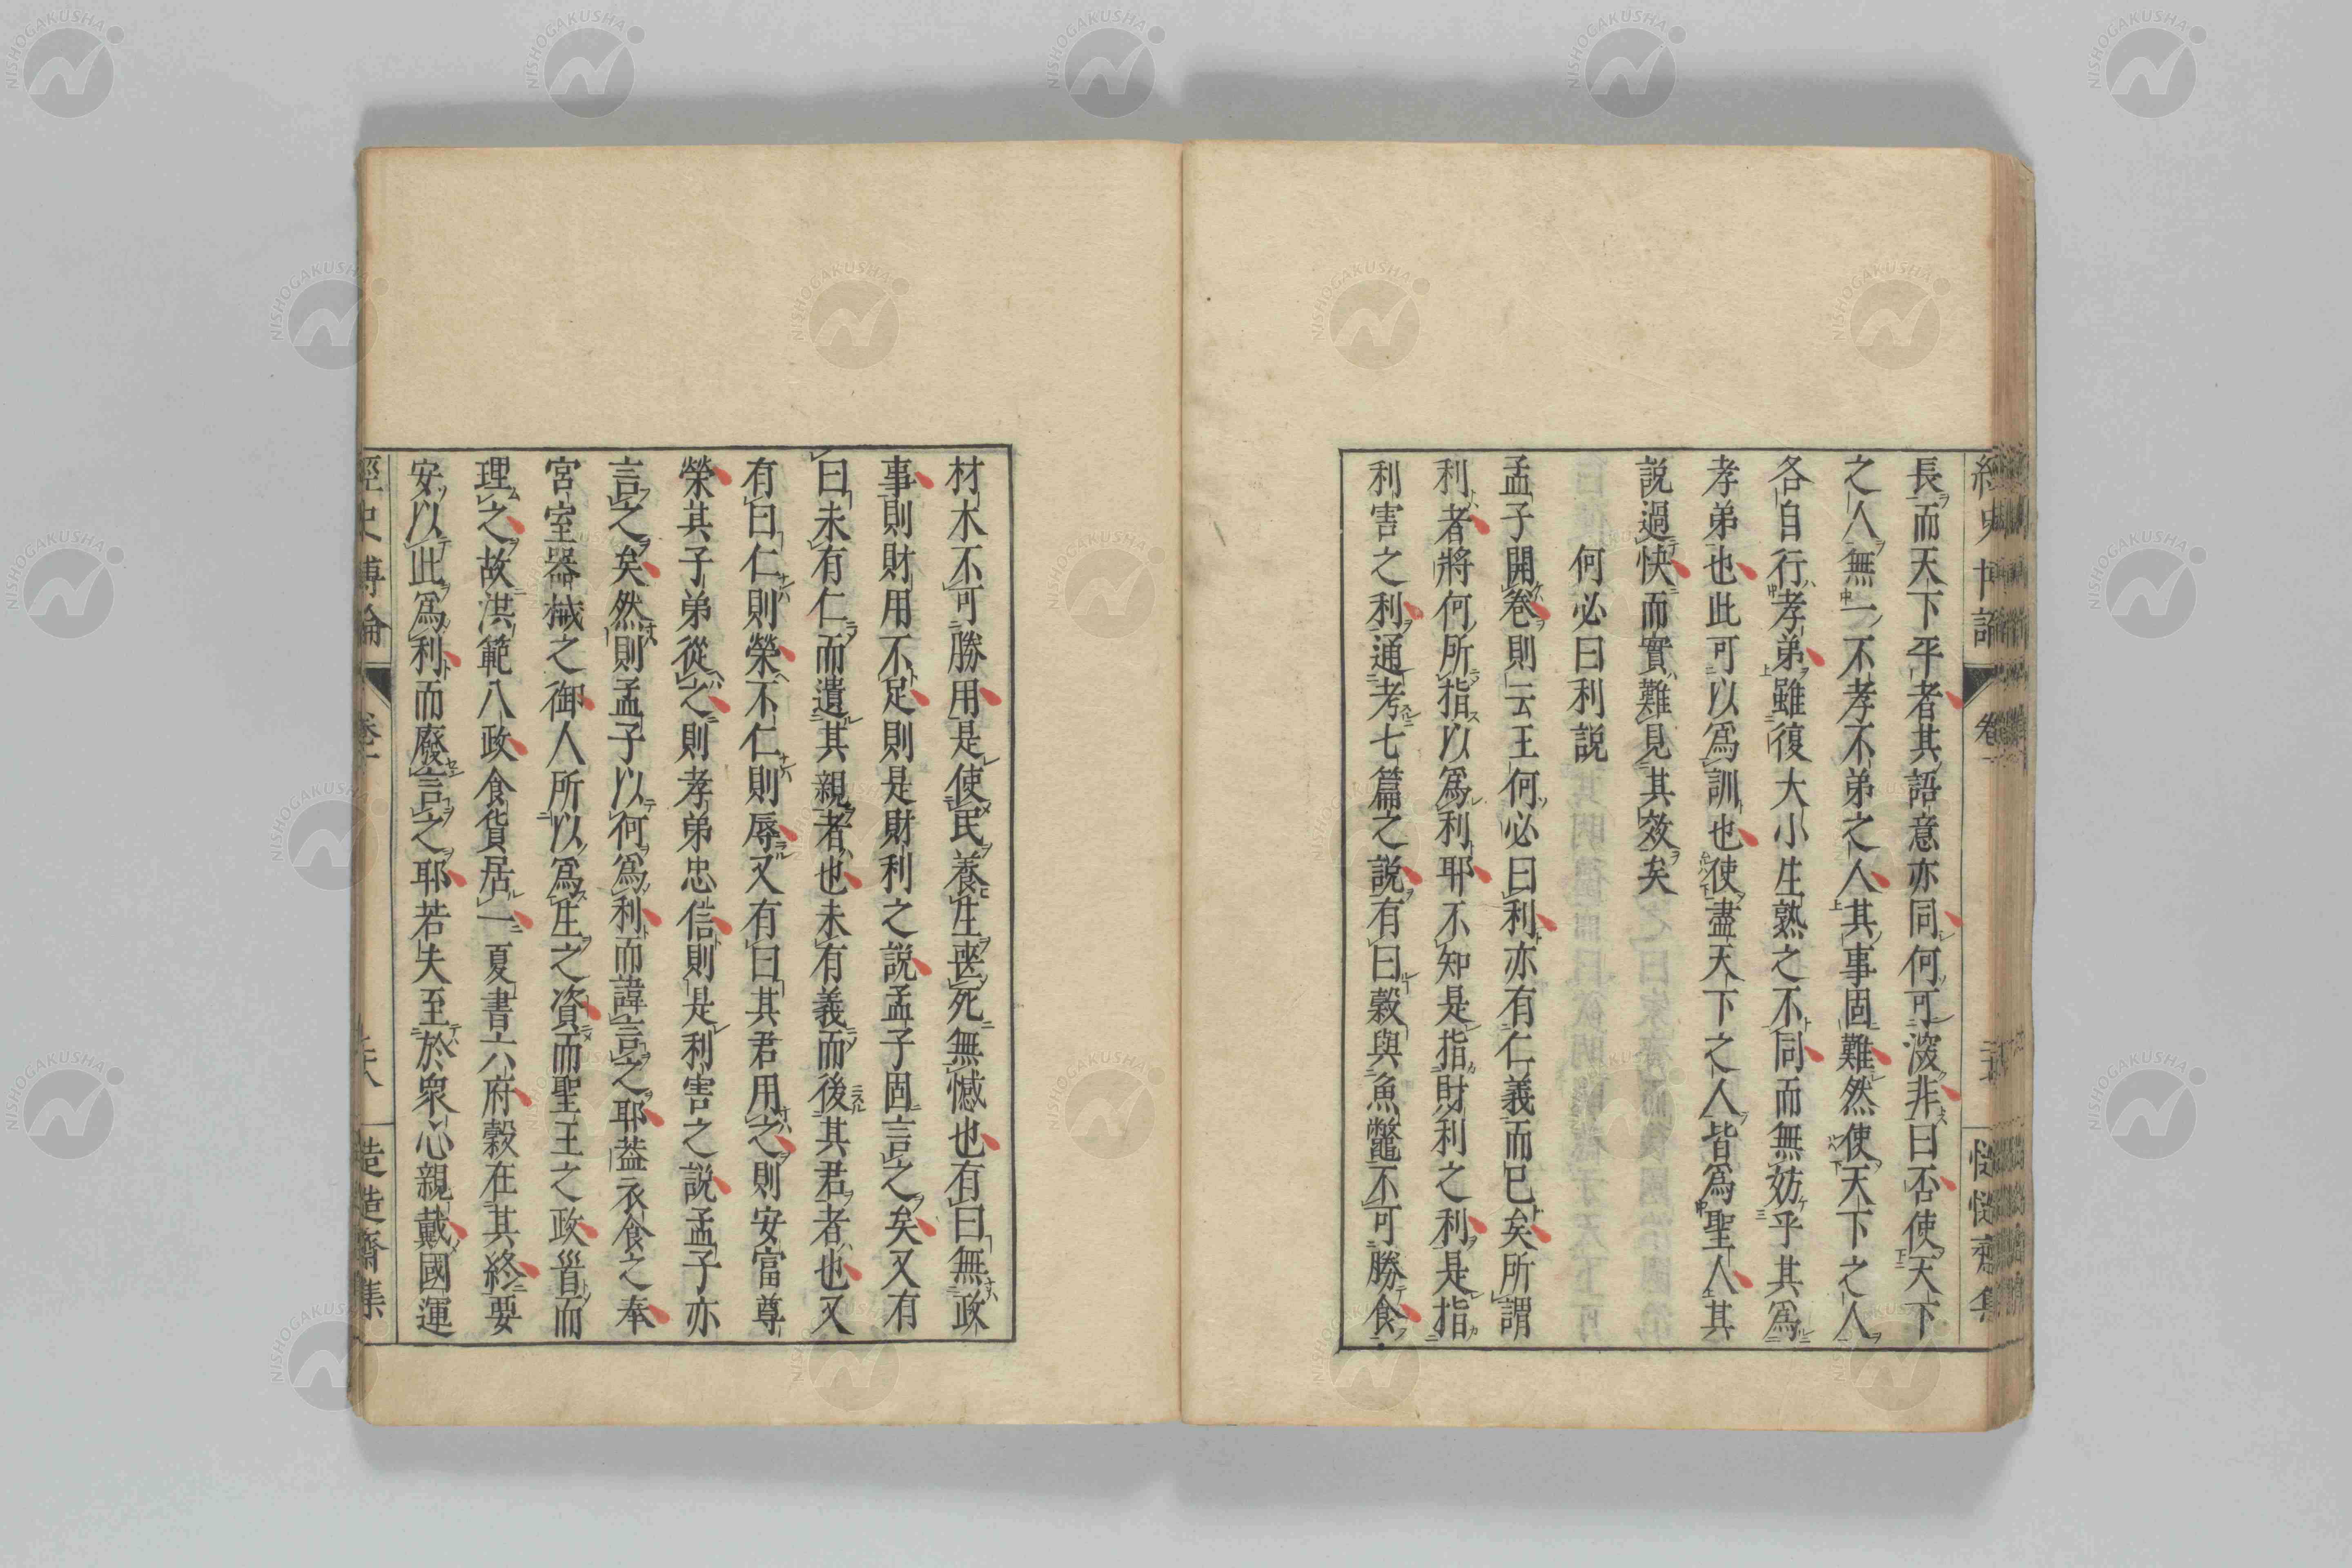 長而天下平者其語意亦同何可深非曰否使天下
之人無一不孝不弟之人其事固難然使天下之人
各自行孝弟雖復大小生熟之不同而無妨乎其爲
孝弟也此可以爲訓也使盡天下之人皆爲聖人其
說過快而實難見其效矣
何必曰利說
孟子開卷則云王何必曰利亦有仁義而已矣所謂
利者將何所指以爲利耶不知是指財利之利是指
利害之利通考七篇之說有曰穀與魚鼈不可勝食
材木不可勝用是使民養生喪死無憾也有曰無政
事則財用不足則是財利之說孟子固言之矣又有
曰未有仁而遺其親者也未有義而後其君者也又
有曰仁則榮不仁則辱又有曰其君用之則安富尊
榮其子弟從之則孝弟忠信則是利害之說孟子亦
言之矣然則孟子以何爲利而諱言之耶蓋衣食之奉
宮室器械之御人所以爲生之資而聖王之政首而
理之故洪範八政食貨居一夏書六府穀在其終要
安以此爲利而廢言之耶若夫至於衆心親戴國運
經史博論